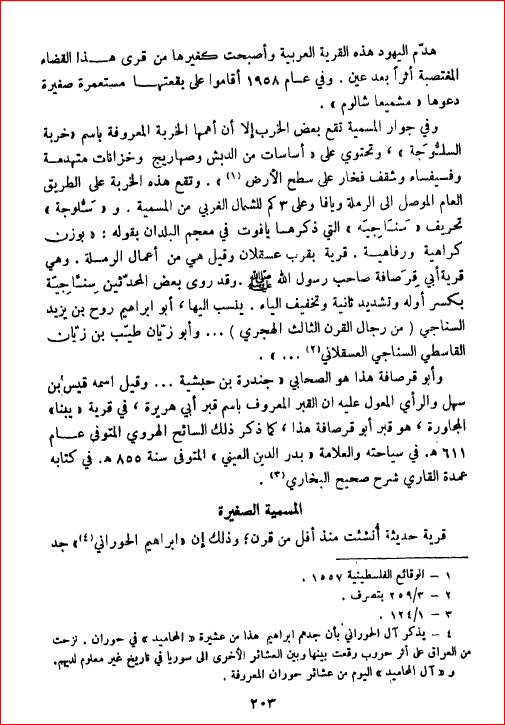 هدّم اليهود هذه القرية العربية وأصبحت كغيرها من قرى هـذا القضاء
المغتصبة أثراً بعد عين . وفي عـام ١٩٥٨ أقاموا على بقعتهـا مستعمرة صغيرة
دعوها « مشميعا شالوم » .
وفي جوار المسمية تقع بعض الخرب إلا أن أهمها الخربة المعروفة باسم « خربة
السلُّوجَة » ، وتحتوي على « أساسات من الدبش وصهاريج وخزانات متهدمة
وفسيفساء وشقف فخار على سطح الأرض (١) » . وتقع هذه الخربة على الطريق
العام الموصل الى الرملة ويافا وعلى ٣ كم للشمال الغربي من المسمية . و « سَلُّوجة »
تحريف « سَنَاجِيَه » التي ذكرهـا ياقوت في معجم البلدان بقوله : « بوزن
كراهية ورفاهيـة . قرية بقرب عسقلان وقيل هي من أعمال الرمـلة . وهي
قرية أبي قِرْصافة صاحب رسول الله ﷺ . وقد روى بعض المحدّثين سِنَّاجِيَة
بكسر أوله وتشديد ثانية وتخفيف الياء . ينسب اليها ، أبو ابراهيم روح بن يزيد
السناجي ( من رجال القرن الثالث الهجري ) ... وأبو زيّان طيّب بن زيّان
القاسطي السناجي العسقلاني (٢) ... » .
وأبو قرصافة هذا هو الصحابي « جندرة بن حبشية ... وقيل اسمه قيس بن
سهل والرأي المعول عليه ان القبر المعروف باسم قبر أبي هريرة ، في قرية « يبنا »
المجاورة ، هو قبر أبو قرصافة هذا ، كما ذكر ذلك السائح الهروي المتوفى عـام
٦١١ هـ. في سياحته والعلامة « بدر الدين العيني » المتوفى سنة ٨٥٥ هـ. في كتابه
عمدة القاري شرح صحيح البخاري (٣) .
المسمية الصغيرة
قرية حديثة أُنشئت منذ أقل من قرن ؛ وذلك إن « ابراهيم الحوراني (٤) » جد
١ – الوقائع الفلسطينية ١٥٥٧ .
٢ – ٢٥٩/٣ بتصرف .
٣ – ١٢٤/١ .
٤ – يذكر آل الحوراني بأن جدهم ابراهيم هذا من عشيرة « المحاميد » في حوران . نزحت
من العراق على أثر حروب وقعت بينها وبين العشائر الأخرى الى سوريا في تاريخ غير معلوم لديهم.
و « آل المحاميد » اليوم من عشائر حوران المعروفة .
٢٠٣